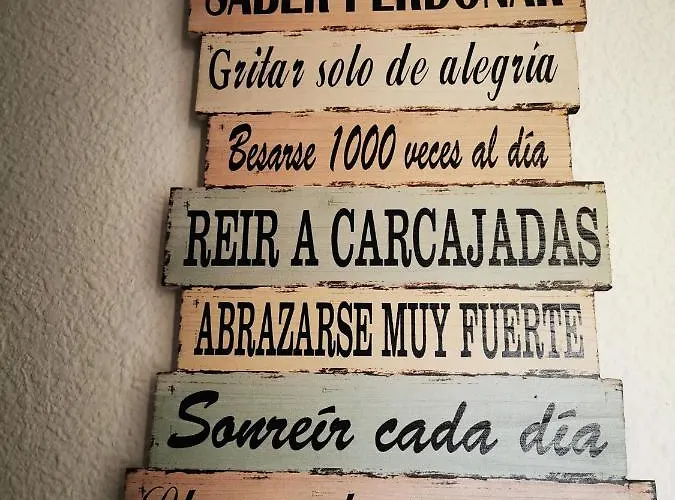 SABER PERDONAR
Gritar solo de alegría
Besarse 1000 veces al día
REIR A CARCAJADAS
ABRAZARSE MUY FUERTE
Sonreír cada día